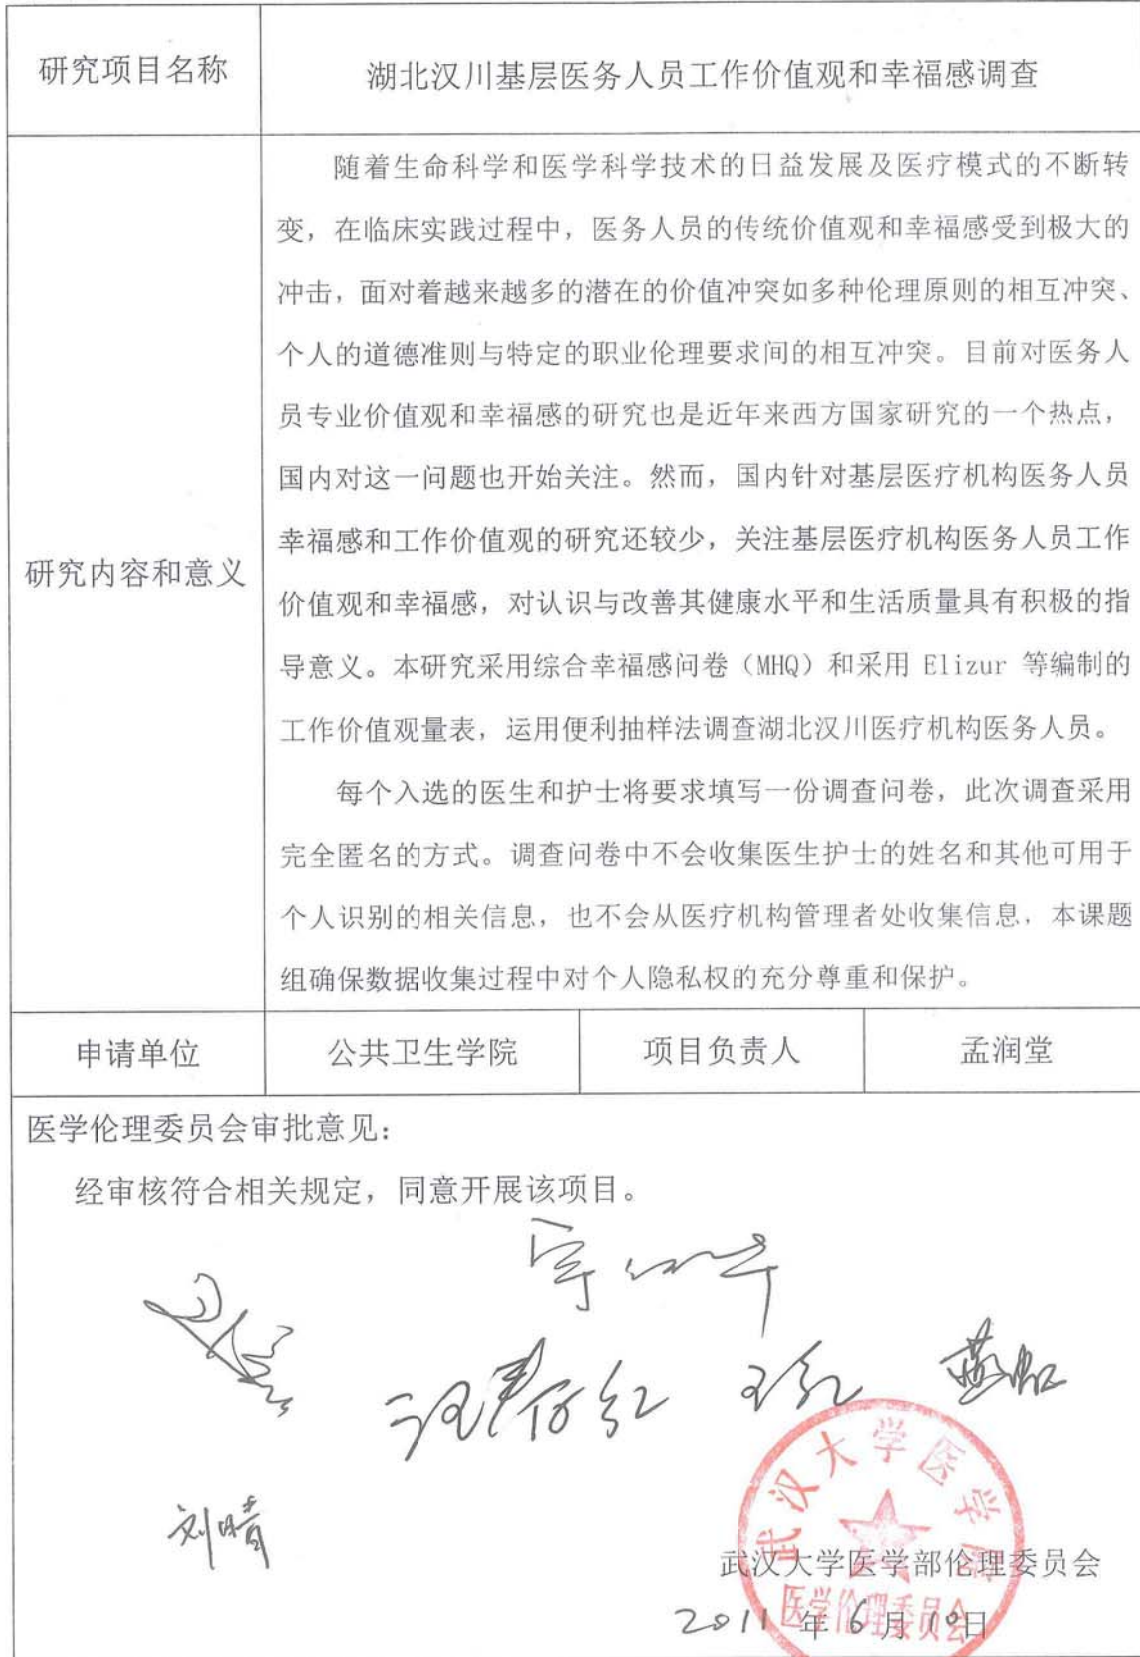 研究项目名称
湖北汉川基层医务人员工作价值观和幸福感调查
研究内容和意义
随着生命科学和医学科学技术的日益发展及医疗模式的不断转
变，在临床实践过程中，医务人员的传统价值观和幸福感受到极大的
冲击，面对着越来越多的潜在的价值冲突如多种伦理原则的相互冲突、
个人的道德准则与特定的职业伦理要求间的相互冲突。目前对医务人
员专业价值观和幸福感的研究也是近年来西方国家研究的一个热点，
国内对这一问题也开始关注。然而，国内针对基层医疗机构医务人员
幸福感和工作价值观的研究还较少，关注基层医疗机构医务人员工作
价值观和幸福感，对认识与改善其健康水平和生活质量具有积极的指
导意义。本研究采用综合幸福感问卷（MHQ）和采用 Elizur 等编制的
工作价值观量表，运用便利抽样法调查湖北汉川医疗机构医务人员。
每个入选的医生和护士将要求填写一份调查问卷，此次调查采用
完全匿名的方式。调查问卷中不会收集医生护士的姓名和其他可用于
个人识别的相关信息，也不会从医疗机构管理者处收集信息，本课题
组确保数据收集过程中对个人隐私权的充分尊重和保护。
申请单位
公共卫生学院
项目负责人
孟润堂
医学伦理委员会审批意见：
经审核符合相关规定，同意开展该项目。
刘晴
武汉大学医学院
医学伦理委员会
武汉大学医学部伦理委员会
2011 年 6 月 10日